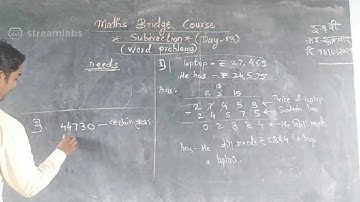 streamlabs
Maths Bridge Course
* Subtraction * (Day-13)
(word problems)
needs
laptop = ₹ 27,459
He has = ₹ 24,575
Ans:-
2 7 4 5 9 ← Price of laptop
- 2 4 5 7 5 ←
0 2 8 8 4 ← He still needs
Ans- He still needs ₹ 2884 to buy
a laptop.
44730 – certain year